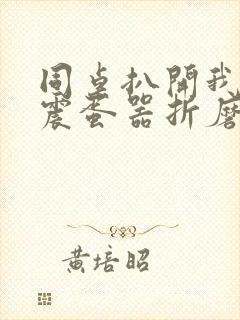 同桌扒開我
震蛋器折磨
黃培昭